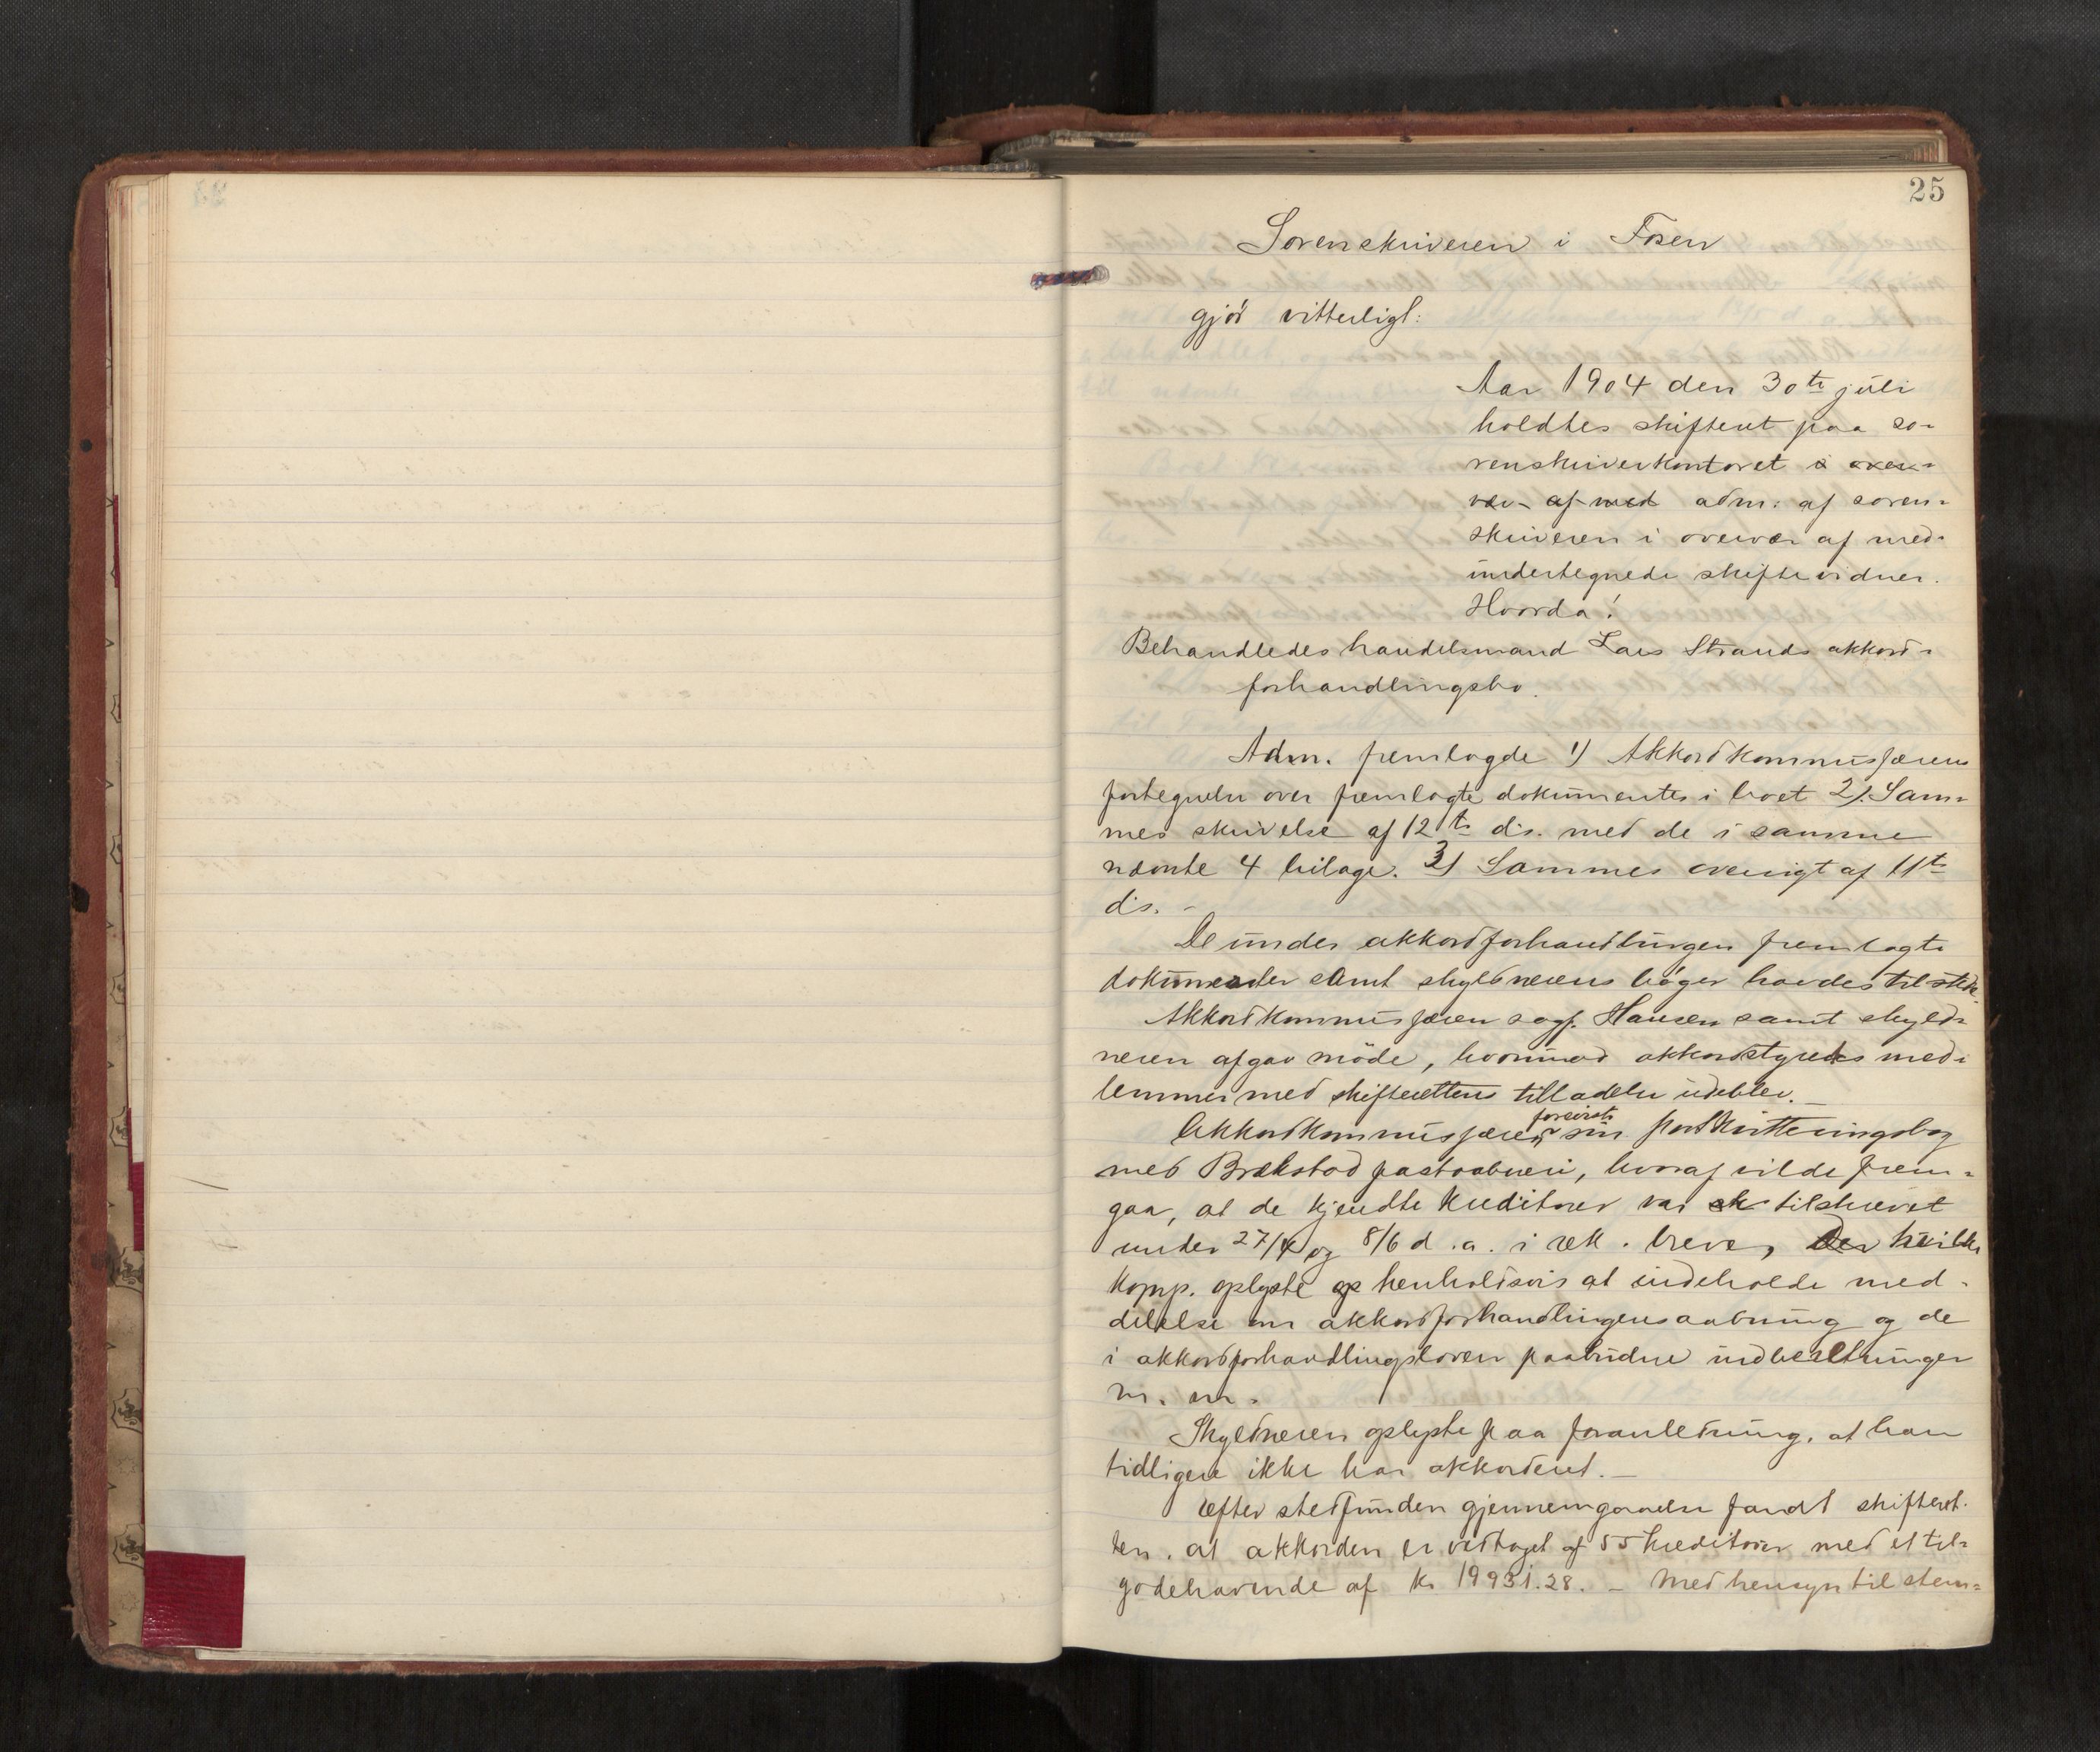 25
Sorenskriveren i Fosen
gjör vitterligt:
Aar 1904 den 30te juli
holdtes skifteret paa so-
renskriverkontoret i over-
vær af med adm: af soren-
skriveren i overvær af med-
undertegnede skiftevidner.
Hvorda!
Behandledes handelsmand Lars Strands akkord-
forhandlingsbo.
Adm. fremlagde 1) Akkordkommissærens
fortegnelse over fremlagte dokumenter i boet 2). Sam-
mes skrivelse af 12te ds. med de i samme
nævnte 4 bilage. 3) Sammes oversigt af 11te
ds. -
De under akkordforhandlingen fremlagte
dokumenter samt skyldnerens bøger havdes tilstede.
Akkordkommissæren sagf. Hansen samt skyld-
neren afgav möde, hvorimod akkordstyrets med-
lemmer med skifterettens tilladelse udeblev. -
Akkordkommissæren foreviste sin postkvitteringsbog
med Brækstad postaabneri, hvoraf vilde frem-
gaa, at de kjendte kreditorer var tilskrevet
under 27/4 og 8/6 d.a. i rek. breve, hvilke
komp. oplyste henholdsvis at indeholde med-
delelse om akkordforhandlingens aabning og de
i akkordforhandlingsloven paabudne indberetninger
m. m.
Skyldneren oplyste paa foranledning, at han
tidligere ikke har akkorderet. -
Efter stedfunden gjennemgaaelse fandt skifteret-
ten, at akkorden er vedtaget af 55 kreditorer med et til-
godehavende af kr 19931.28. - Med hensyn til stem-